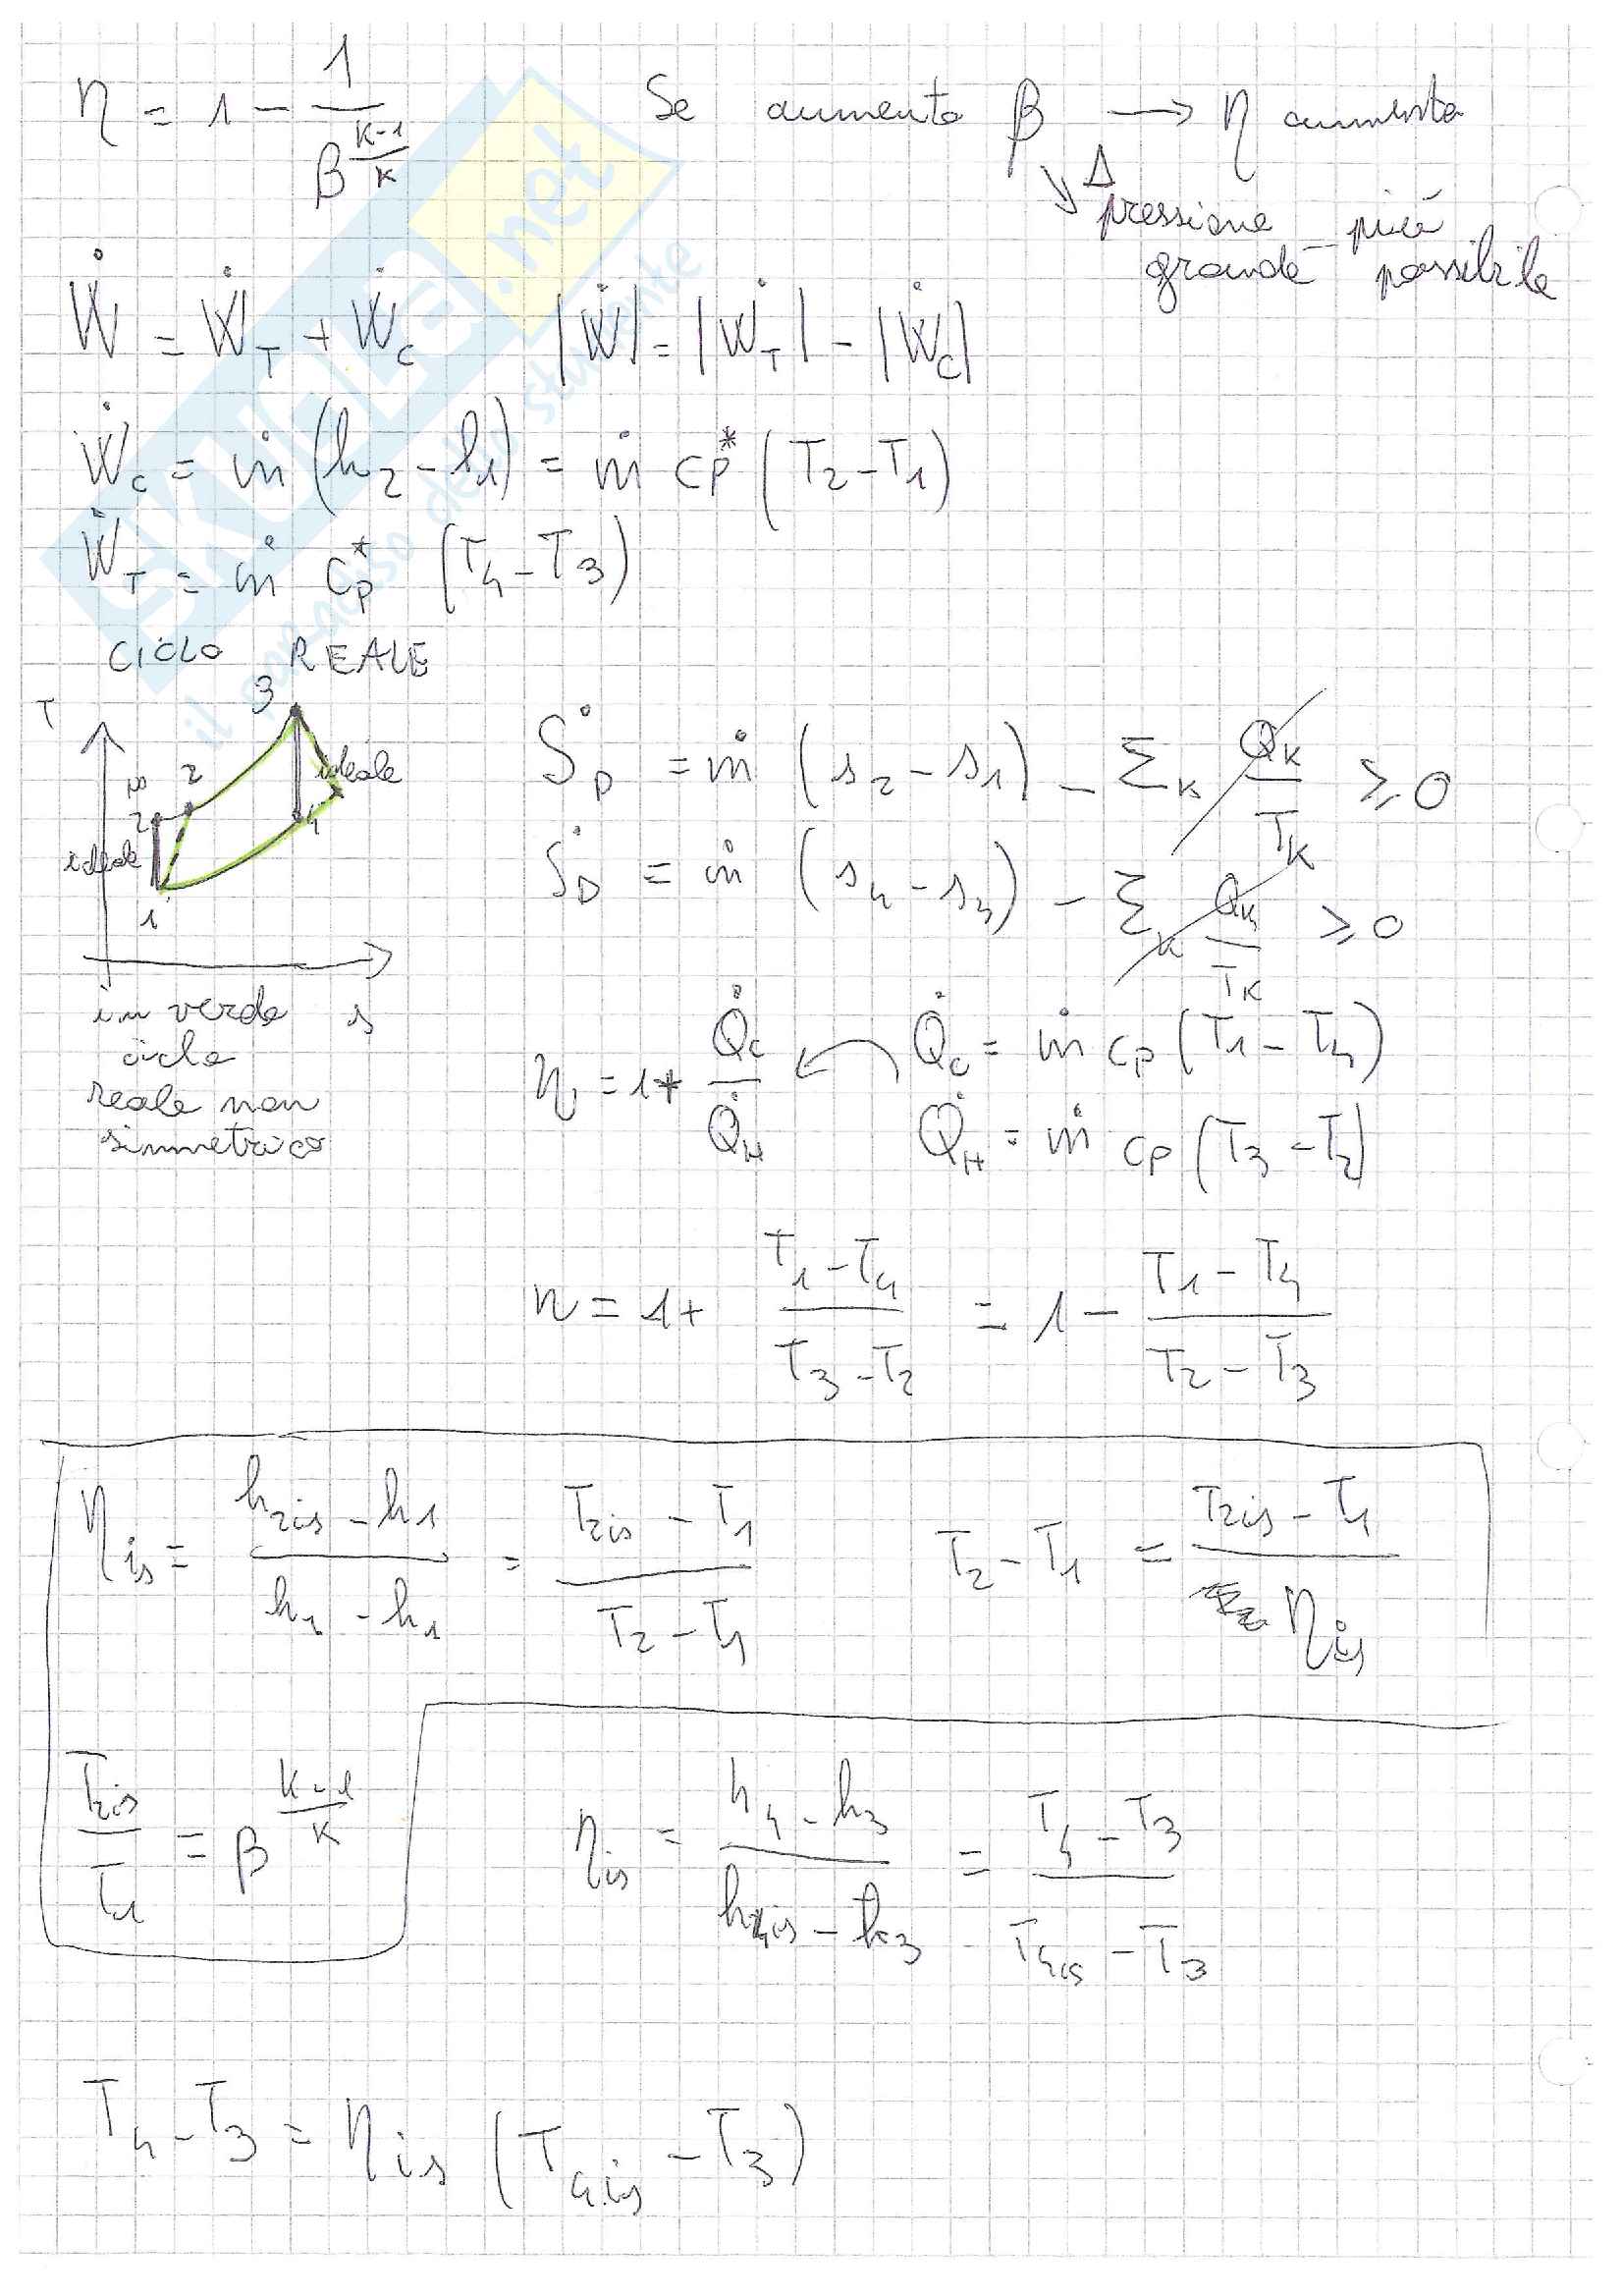 η = 1 - 1 / β^((k-1)/k)
Se aumento β → η aumenta
Δ pressione più
grande possibile
Ẇ = Ẇ_T + Ẇ_C |Ẇ| = |Ẇ_T| - |Ẇ_C|
Ẇ_C = ṁ (h2 - h1) = ṁ cp* (T2 - T1)
Ẇ_T = ṁ cp* (T4 - T3)
CICLO REALE
T
3
2
ideale
2
4
ideale
1
s
in verde
ciclo
reale non
simmetrico
Ṡ_D = ṁ (s2 - s1) - Σ_k Q̇k / Tk ≥ 0
Ṡ_D = ṁ (s4 - s3) - Σ_k Q̇k / Tk ≥ 0
η = 1 + Q̇c / Q̇H
Q̇c = ṁ cp (T1 - T4)
Q̇H = ṁ cp (T3 - T2)
η = 1 + (T1 - T4) / (T3 - T2) = 1 - (T1 - T4) / (T2 - T3)
η_is = (h2is - h1) / (h2 - h1) = (T2is - T1) / (T2 - T1)
T2 - T1 = (T2is - T1) / η_is
T2is / T1 = β^((k-1)/k)
η_is = (h4 - h3) / (h4is - h3) = (T4 - T3) / (T4is - T3)
T4 - T3 = η_is (T4is - T3)
SKUOLA.net
il paradiso dello studente